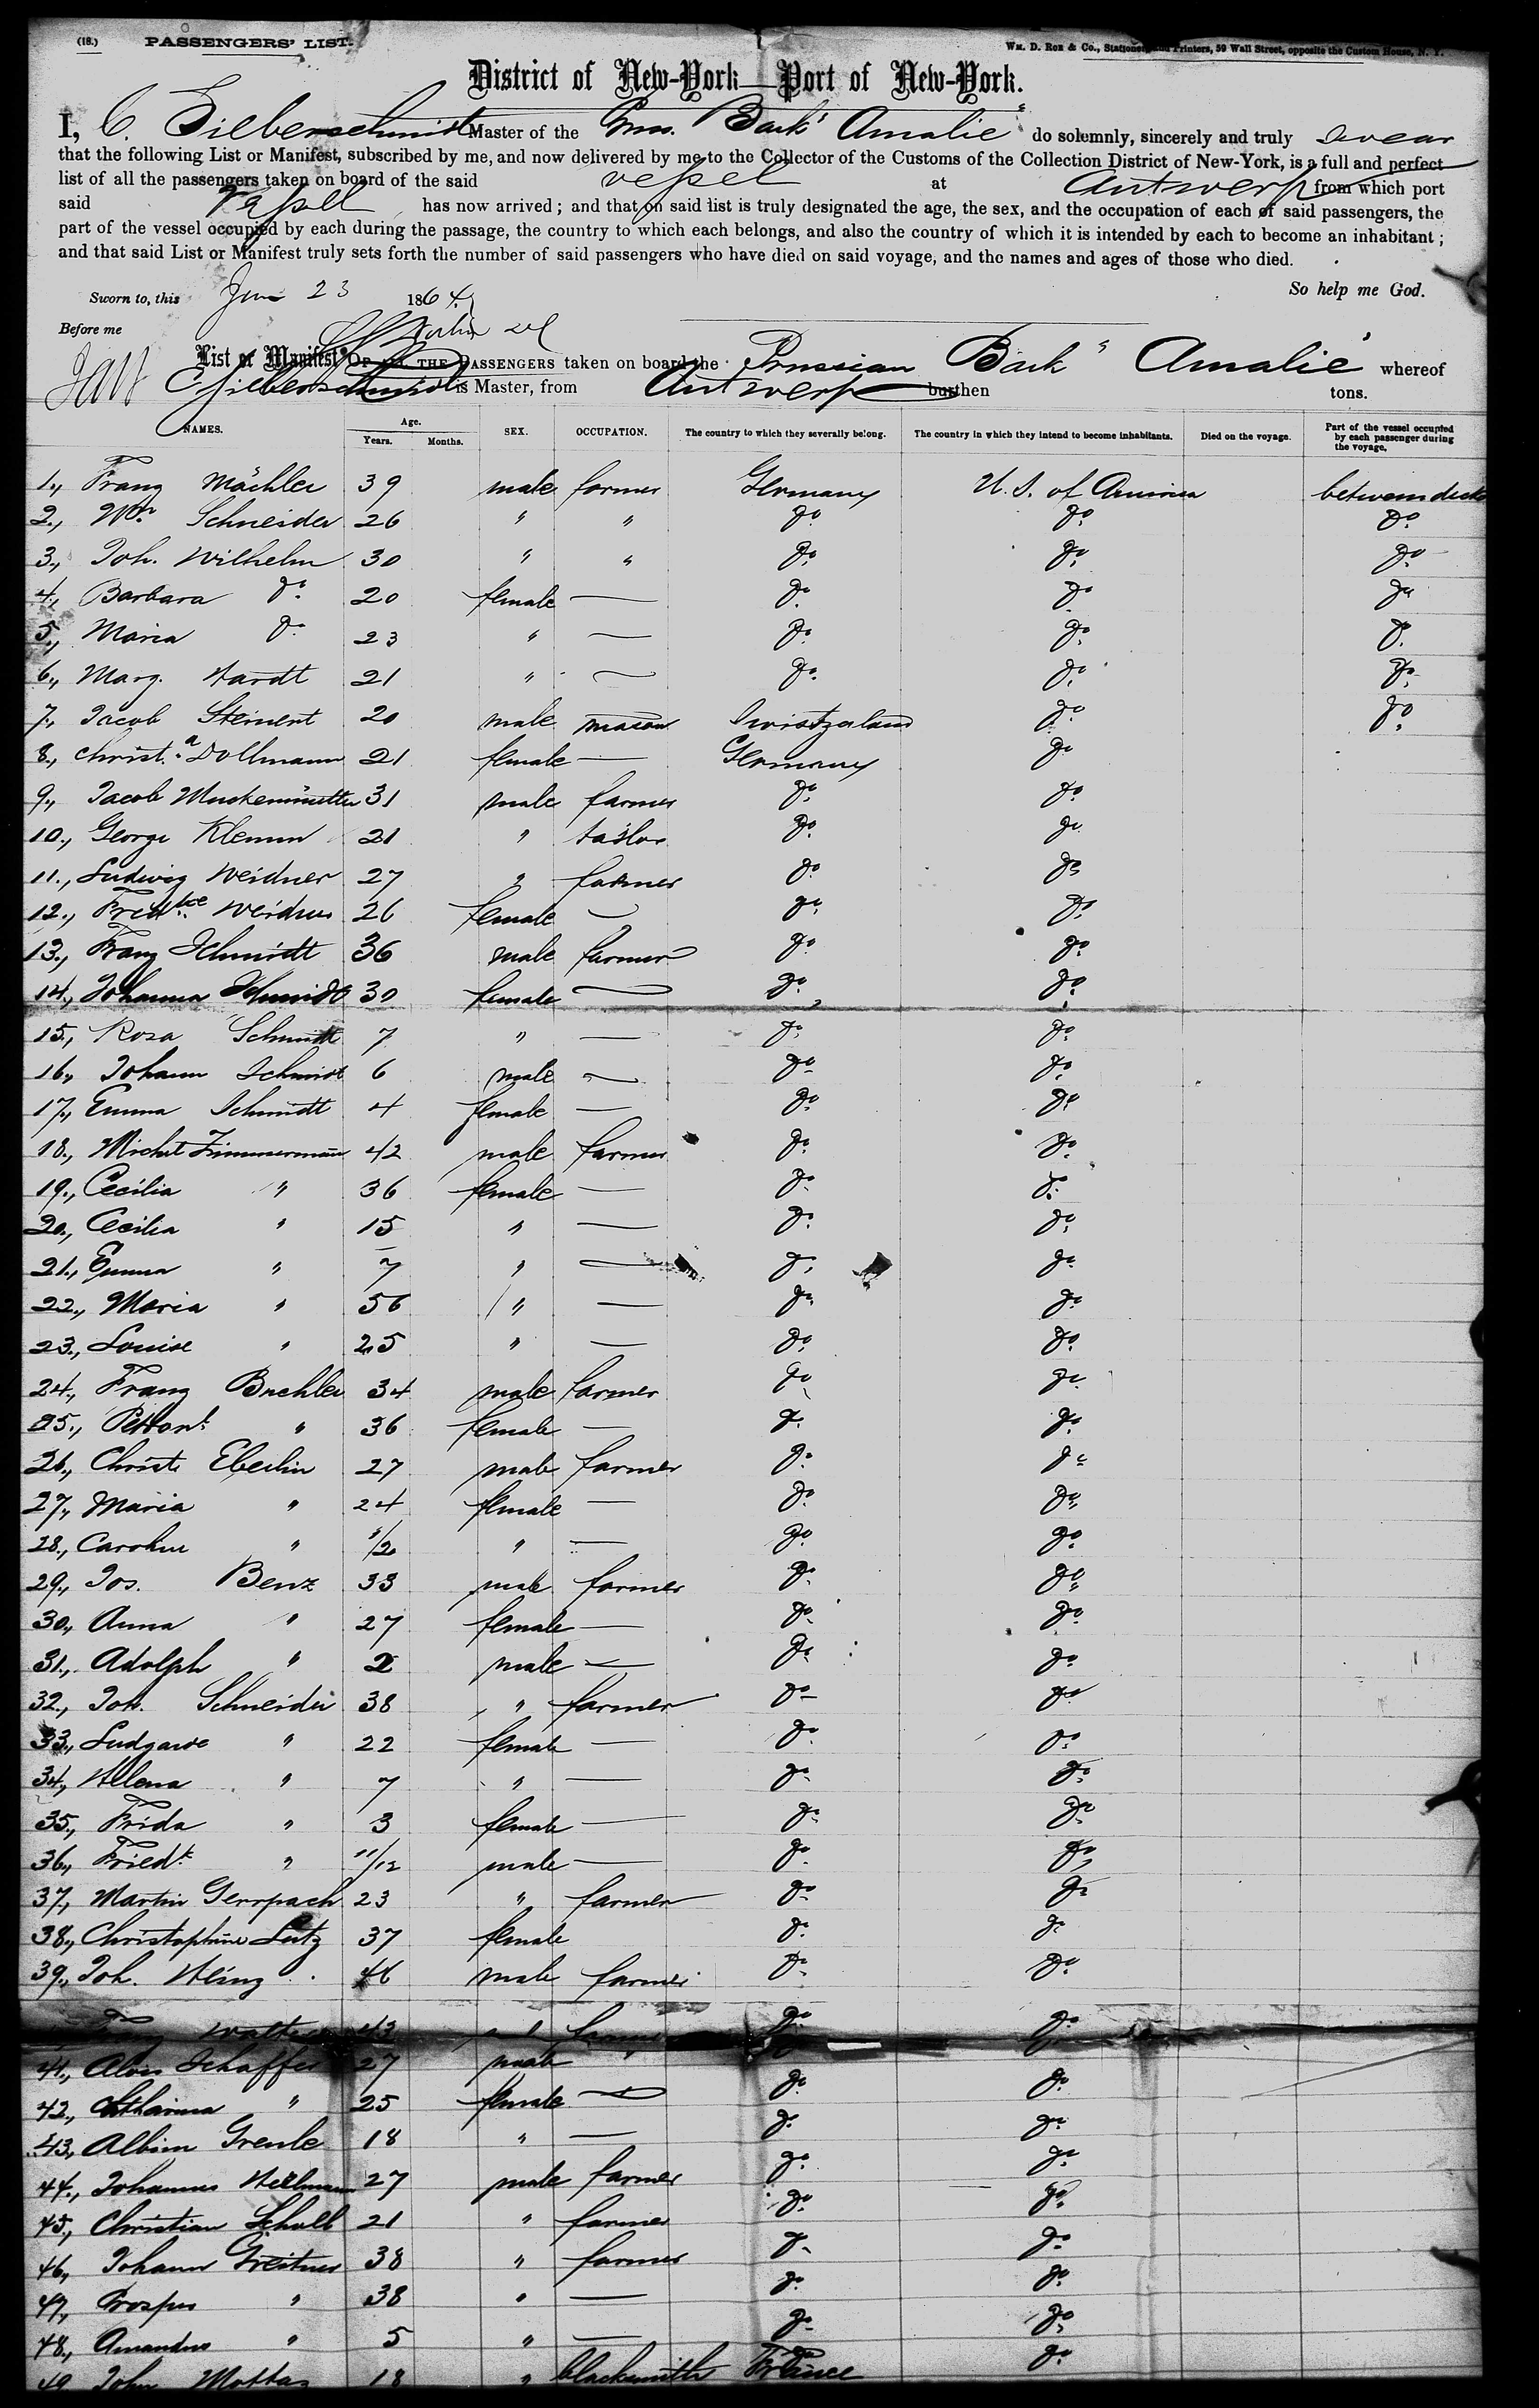 (18.) PASSENGERS' LIST. Wm. D. Roe & Co., Stationers and Printers, 59 Wall Street, opposite the Custom House, N. Y.
District of New-York—Port of New-York.
I, C. Silberschmidt Master of the Prus. Bark "Amalie" do solemnly, sincerely and truly swear
that the following List or Manifest, subscribed by me, and now delivered by me to the Collector of the Customs of the Collection District of New-York, is a full and perfect
list of all the passengers taken on board of the said vessel at Antwerp from which port
said vessel has now arrived; and that on said list is truly designated the age, the sex, and the occupation of each of said passengers, the
part of the vessel occupied by each during the passage, the country to which each belongs, and also the country of which it is intended by each to become an inhabitant;
and that said List or Manifest truly sets forth the number of said passengers who have died on said voyage, and the names and ages of those who died.
So help me God.
Sworn to, this June 23 1864
Before me
List or Manifest OF ALL THE PASSENGERS taken on board the Prussian Bark "Amalie" whereof
C Silberschmidt is Master, from Antwerp burthen tons.
NAMES. Age. Years. Months. SEX. OCCUPATION. The country to which they severally belong. The country in which they intend to become inhabitants. Died on the voyage. Part of the vessel occupied by each passenger during the voyage.
1., Franz Mächler 39 male farmer Germany U. S. of America between decks
2., Wm Schneider 26 " " do do do
3., Joh. Wilhelm 30 " " do do do
4., Barbara do 20 female — do do do
5., Maria do 23 " — do do do
6., Marg. Hardt 21 " — do do do
7., Jacob Steinert 20 male mason Switzerland do do
8., Christ.a Dollmann 21 female — Germany do
9., Jacob 31 male farmer do do
10., George Klemm 21 " tailor do do
11., Ludwig Weidner 27 " farmer do do
12., Fredke Weidner 26 female — do do
13., Franz Schmidt 36 male farmer do do
14., Johanna Schmidt 30 female — do do
15., Rosa Schmidt 7 " — do do
16., Johann Schmidt 6 male — do do
17., Emma Schmidt 4 female — do do
18., Michel Zimmermann 42 male farmer do do
19., Cecilia " 36 female — do do
20., Cecilia " 15 " — do do
21., Emma " 7 " — do do
22., Maria " 56 " — do do
23., Louise " 25 " — do do
24., Franz Buchler 34 male farmer do do
25., " 36 female — do do
26., Christ. Eberlin 27 male farmer do do
27., Maria " 24 female — do do
28., Caroline " 1/2 " — do do
29., Jos. Benz 33 male farmer do do
30., Anna " 27 female — do do
31., Adolph " 2 male — do do
32., Joh. Schneider 38 " farmer do do
33., Ludgarde " 22 female — do do
34., Helena " 7 " — do do
35., Frida " 3 female — do do
36., Friedk " 11/12 male — do do
37., Martin Gerspach 23 " farmer do do
38., Christophine Lutz 37 female do do
39., Joh. Heinz 46 male farmer do do
Franz Walter 43 farmer do do
41., Alois Schaffer 27 male " do do
42., Catharina " 25 female — do do
43., Albine Grenle 18 " — do do
44., Johannes Hellmann 27 male farmer do do
45., Christian Scholl 21 " farmer do do
46., Johann Greitner 38 " farmer do do
47., Prosper " 38 " — do do
48., Amandus " 5 " — do do
49., John Mottas 18 " blacksmith France do